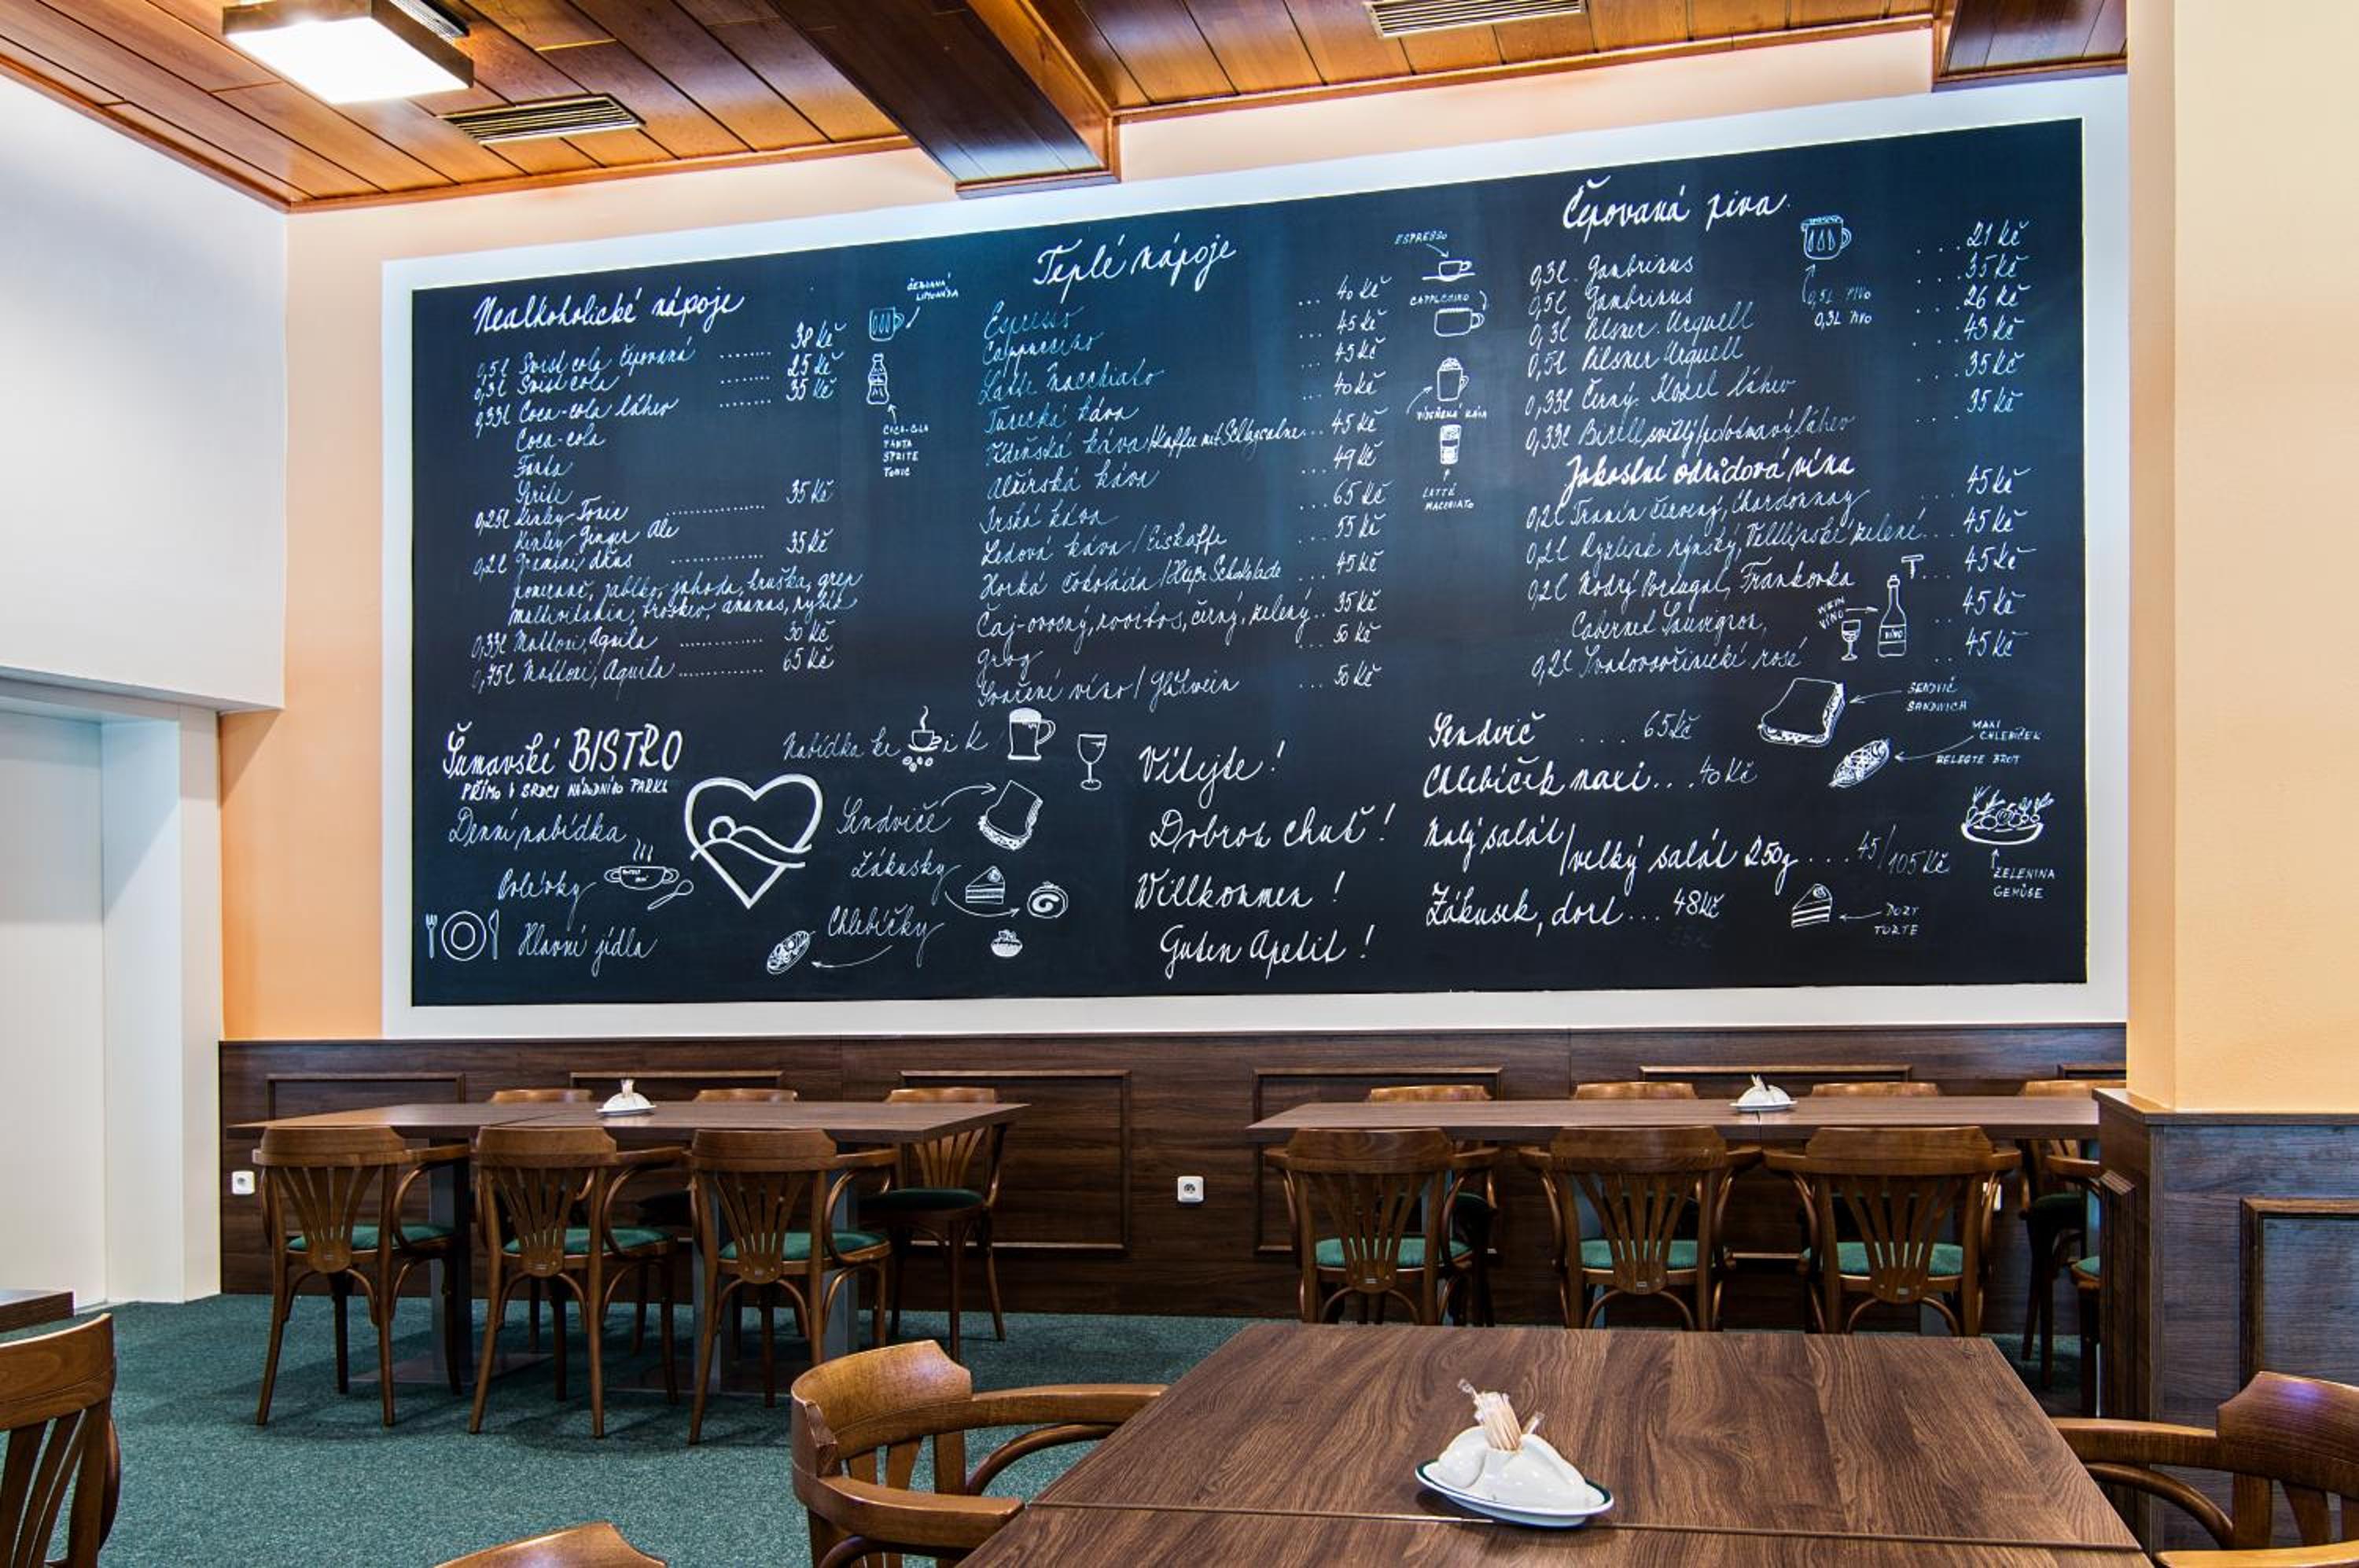 Nealkoholické nápoje
0,5l Swist cola čepovaná ....... 38 Kč
0,3l Swist cola ....... 25 Kč
0,33l Coca-cola láhev ....... 35 Kč
Coca-cola
Fanta
Sprite
0,25l Kinley Tonic ............. 35 Kč
Kinley Ginger Ale
0,2l Granini džus ............ 35 Kč
pomeranč, jablko, jahoda, hruška, grep
multivitamin, broskev, ananas, rybíz
0,33l Mattoni, Aquila ........... 30 Kč
0,75l Mattoni, Aquila ........... 65 Kč
LIMONÁDA
COCA-COLA
FANTA
SPRITE
TONIC
Teplé nápoje
Espresso ... 40 Kč
Cappuccino ... 45 Kč
Latte Macchiato ... 45 Kč
Turecká káva ... 40 Kč
Vídeňská káva/Kaffee mit ... 45 Kč
Alžírská káva ... 49 Kč
Irská káva ... 65 Kč
Ledová káva/Eiskaffe ... 55 Kč
Horká čokoláda/Heiße Schokolade ... 45 Kč
Čaj-ovocný, rooibos, černý, zelený.. 35 Kč
Grog ... 50 Kč
Svařené víno/Glühwein ... 50 Kč
ESPRESSO
CAPPUCCINO
VÍDEŇSKÁ KÁVA
LATTÉ
MACCHIATO
Čepovaná piva
0,3l Gambrinus .... 21 Kč
0,5l Gambrinus .... 35 Kč
0,3l Pilsner Urquell .... 26 Kč
0,5l Pilsner Urquell .... 43 Kč
0,33l Černý Kozel láhev .... 35 Kč
0,33l Birell světlý/polotmavý láhev ... 35 Kč
0,5L PIVO
0,3L PIVO
Jakostní odrůdová vína
0,2l Tramín červený, Chardonnay ... 45 Kč
0,2l Ryzlink rýnský, Veltlínské zelené... 45 Kč
0,2l Modrý Portugal, Frankovka ... 45 Kč
Cabernet Sauvignon, .. 45 Kč
0,2l Svatovavřinecké rosé .. 45 Kč
WEIN
VÍNO
VÍNO
Šumavské BISTRO
PŘÍMO V SRDCI NÁRODNÍHO PARKU
Denní nabídka
Polévky
Hlavní jídla
Nabídka ke i k
Sendviče
Zákusky
Chlebíčky
Vítejte!
Dobrou chuť!
Willkommen!
Guten Apetit!
Sendvič .... 65 Kč
Chlebíček maxi... 40 Kč
Malý salát/velký salát 250g.... 45/105 Kč
Zákusek, dort... 48 Kč
SENDVIČ
SANDWICH
MAXI
CHLEBÍČEK
BELEGTE BROT
ZELENINA
GEMÜSE
DORT
TORTE